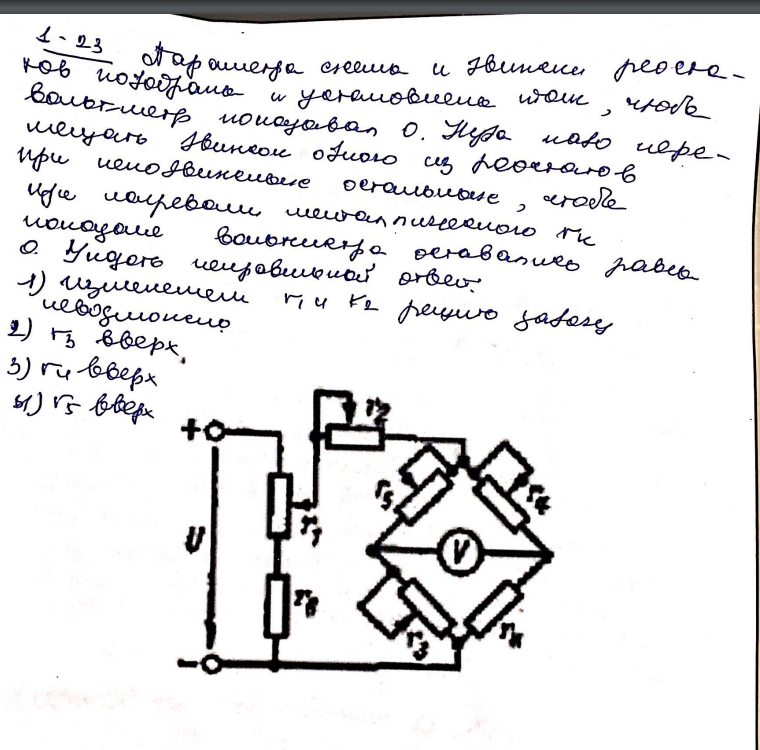 1-23 Параметра схема и движени реоста-
тов подобрана и установлена так, чтоба
вольтметр показавал 0. Куда надо пере-
мещать движок одного из реостатов
при неподвижнных остальных, чтобы
при нагревании металлического rк
показание вольтметра оставались равны
0. Указать неправильный ответ.
1) изменением r1 и r2 решить задачу
невозможно
2) r3 вверх.
3) r4 вверх
4) r5 вверх
+
r2
r5
r4
U
r1
V
r6
r3
rк
-